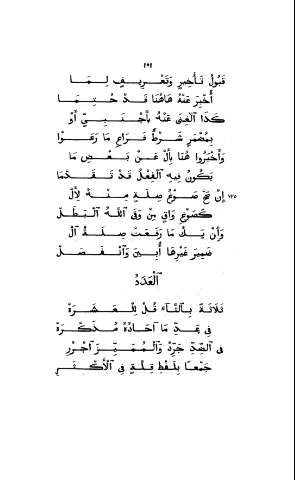 ١٥١
قَبُولُ تَأْخِيرٍ وَتَعْرِيفٍ لِمَا
أُخْبِرَ عَنْهُ هَاهُنَا قَدْ حُتِمَا
كَذَا الْغِنَى عَنْهُ بِأَجْنَبِيٍّ أَوْ
بِمُضْمَرٍ شَرْطٌ فَرَاعِ مَا رَعَوْا
وَأَخْبَرُوا هُنَا بِأَلْ عَنْ بَعْضِ مَا
يَكُونُ فِيهِ الْفِعْلُ قَدْ تَقَدَّمَا
٧٢٥ إِنْ صَحَّ صَوْغُ صِلَةٍ مِنْهُ لِأَلْ
كَصَوْغِ وَاقٍ مِنْ وَقَى اللهُ الْبَطَلْ
وَإِنْ يَكُ مَا رَفَعَتْ صِلَةُ أَلْ
ضَمِيرَ غَيْرِهَا أُبِينَ وَانْفَصَلْ
الْعَدَدُ
ثَلَاثَةً بِالتَّاءِ قُلْ لِلْعَشَرَهْ
فِي عَدِّ مَا آحَادُهُ مُذَكَّرَهْ
فِي الضِّدِّ جَرِّدْ وَالْمُمَيِّزَ اجْرُرِ
جَمْعًا بِلَفْظِ قِلَّةٍ فِي الْأَكْثَرِ